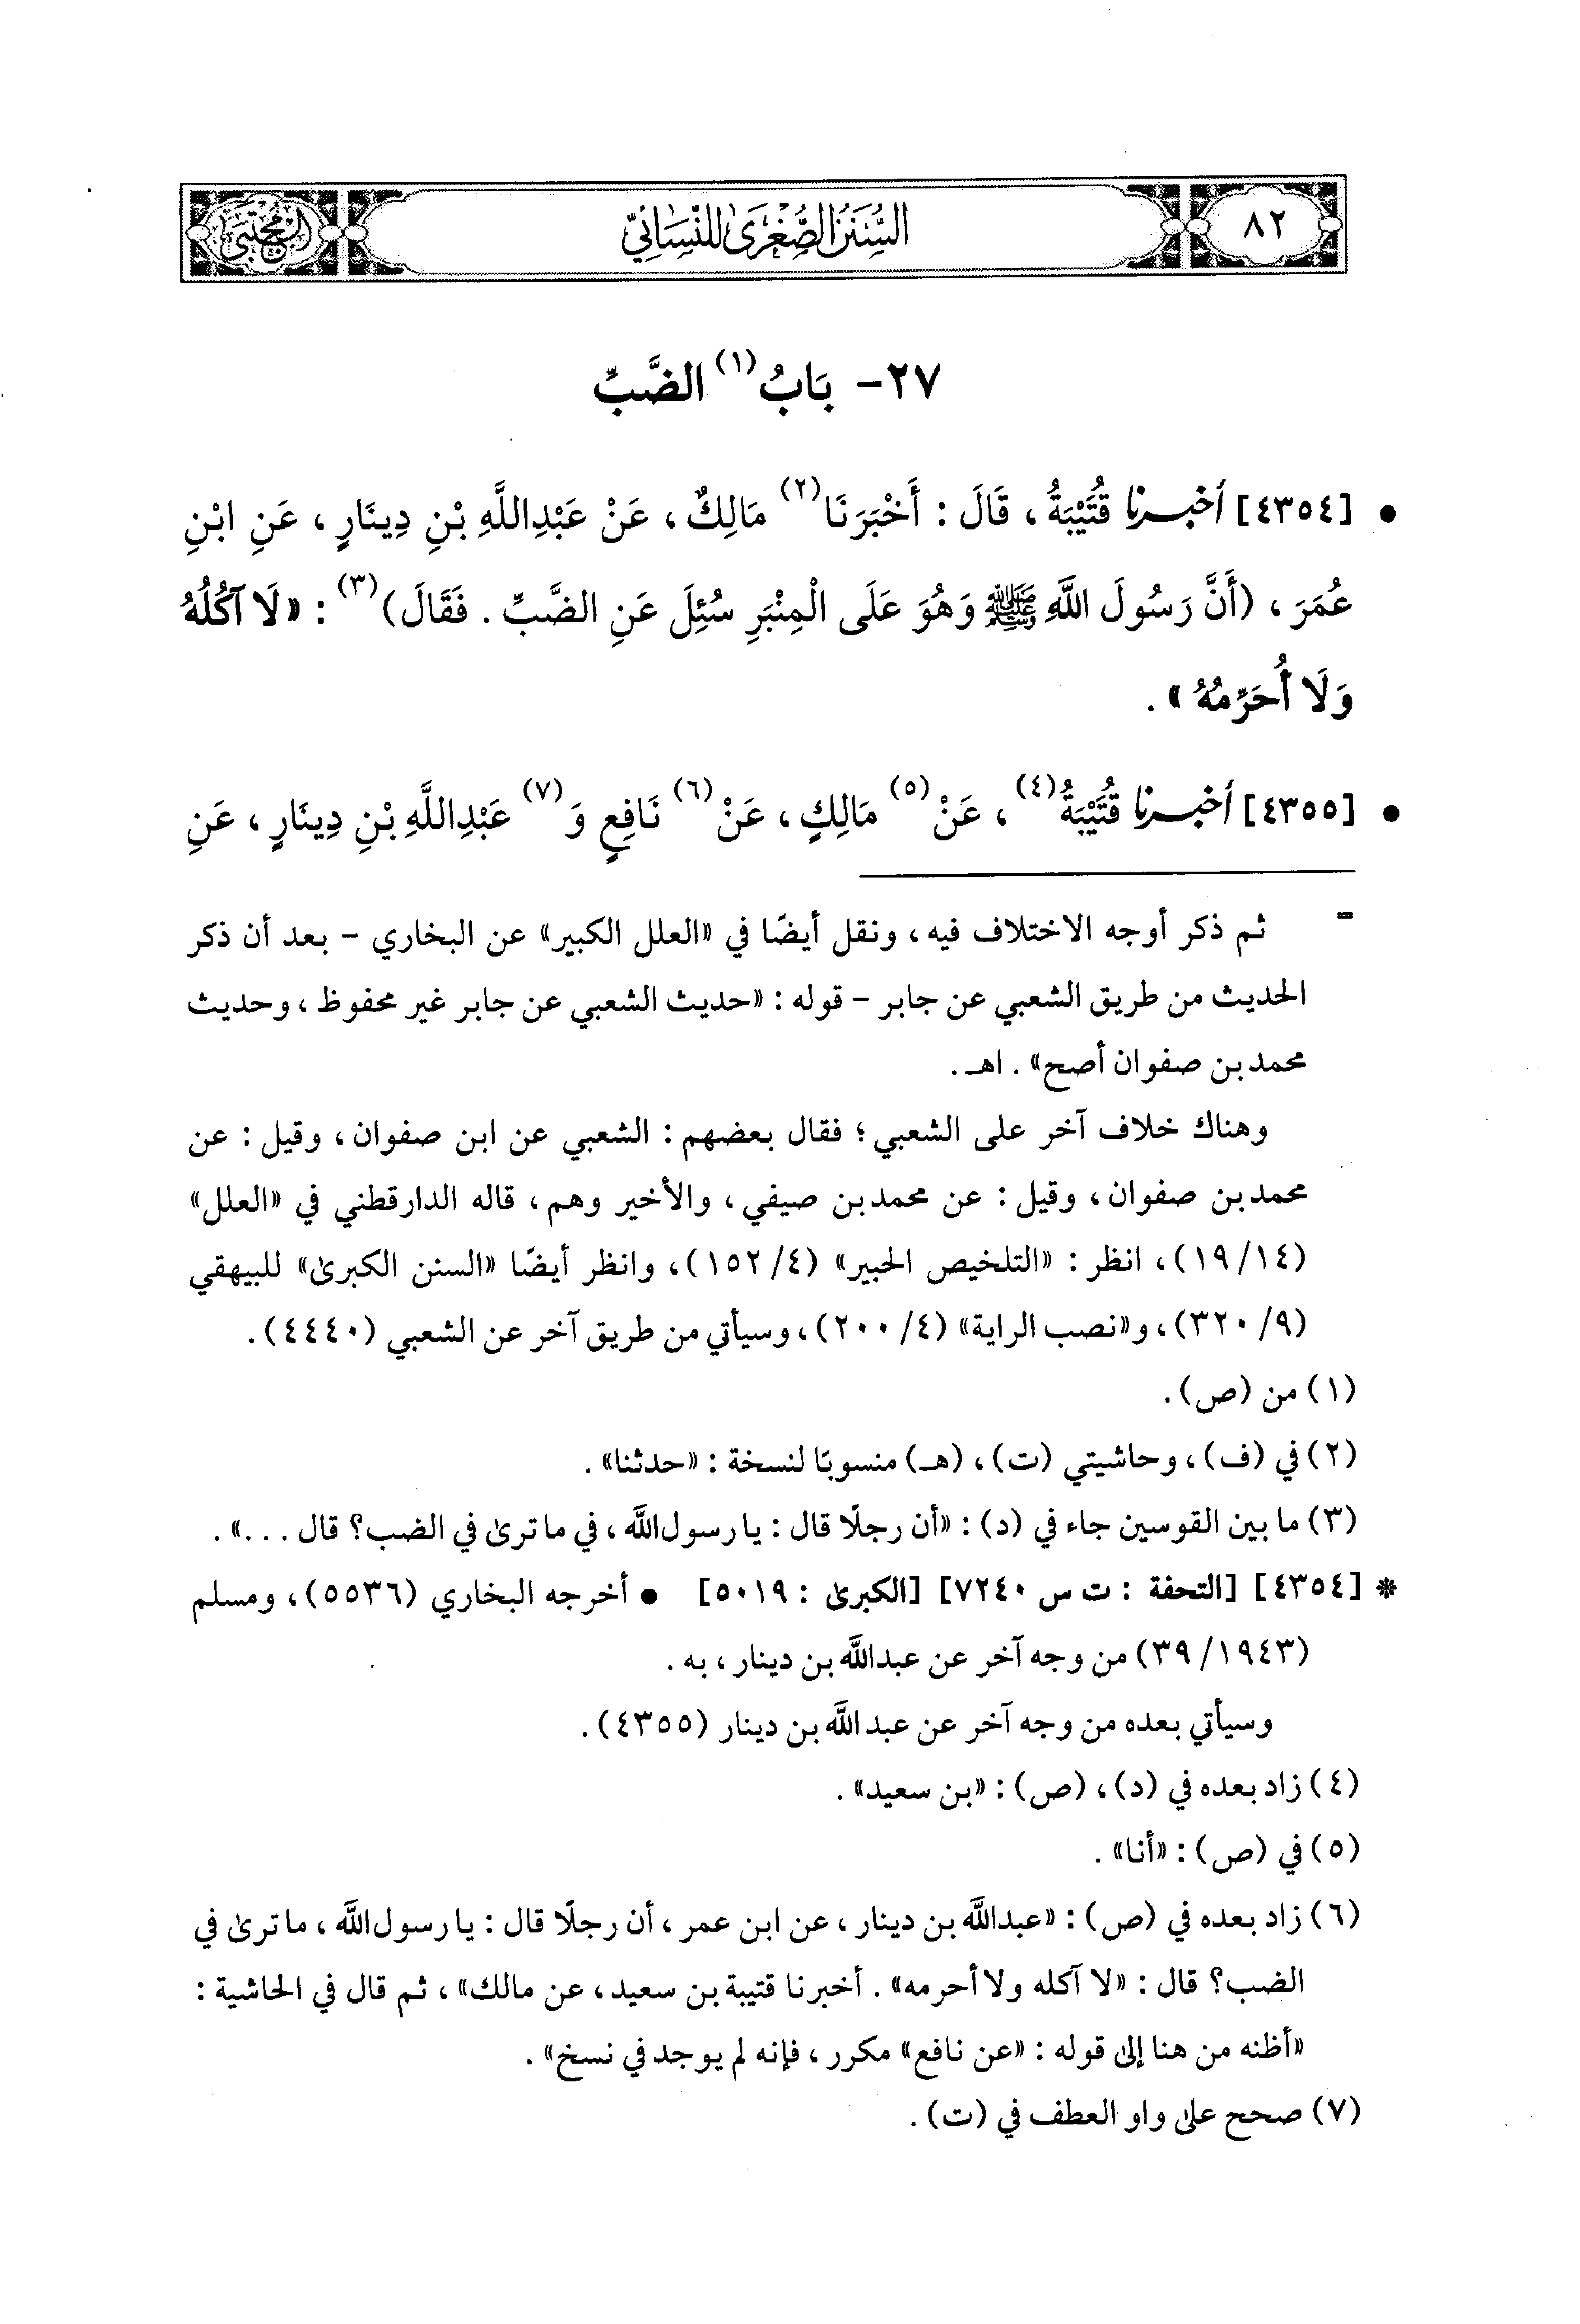 ٨٢
السُّنَنُ الصُّغْرَىٰ لِلنَّسَائِيِّ
المجتبى
٢٧- بَابُ (١) الضَّبِّ
• [٤٣٥٤] أخبرنا قُتَيْبَةُ، قَالَ: أَخْبَرَنَا (٢) مَالِكٌ، عَنْ عَبْدِاللَّهِ بْنِ دِينَارٍ، عَنِ ابْنِ
عُمَرَ، (أَنَّ رَسُولَ اللَّهِ ﷺ وَهُوَ عَلَى الْمِنْبَرِ سُئِلَ عَنِ الضَّبِّ. فَقَالَ) (٣): «لَا آكُلُهُ
وَلَا أُحَرِّمُهُ».
• [٤٣٥٥] أُخبرنا قُتَيْبَةُ (٤)، عَنْ (٥) مَالِكٍ، عَنْ (٦) نَافِعٍ وَ (٧) عَبْدِاللَّهِ بْنِ دِينَارٍ، عَنِ
= ثم ذكر أوجه الاختلاف فيه، ونقل أيضًا في «العلل الكبير» عن البخاري - بعد أن ذكر
الحديث من طريق الشعبي عن جابر - قوله: «حديث الشعبي عن جابر غير محفوظ، وحديث
محمد بن صفوان أصح». اهـ.
وهناك خلاف آخر على الشعبي؛ فقال بعضهم: الشعبي عن ابن صفوان، وقيل: عن
محمد بن صفوان، وقيل: عن محمد بن صيفي، والأخير وهم، قاله الدارقطني في «العلل»
(١٩/١٤)، انظر: «التلخيص الحبير» (١٥٢/٤)، وانظر أيضًا «السنن الكبرىٰ» للبيهقي
(٣٢٠/٩)، و«نصب الراية» (٢٠٠/٤)، وسيأتي من طريق آخر عن الشعبي (٤٤٤٠).
(١) من (ص).
(٢) في (ف)، وحاشيتي (ت)، (هـ) منسوبًا لنسخة: «حدثنا».
(٣) ما بين القوسين جاء في (د): «أن رجلًا قال: يا رسول اللَّه، في ما ترىٰ في الضب؟ قال ...».
* [٤٣٥٤] [التحفة: ت س ٧٢٤٠] [الكبرىٰ: ٥٠١٩] • أخرجه البخاري (٥٥٣٦)، ومسلم
(٣٩/١٩٤٣) من وجه آخر عن عبداللَّه بن دينار، به.
وسيأتي بعده من وجه آخر عن عبداللَّه بن دينار (٤٣٥٥).
(٤) زاد بعده في (د)، (ص): «بن سعيد».
(٥) في (ص): «أنا».
(٦) زاد بعده في (ص): «عبداللَّه بن دينار، عن ابن عمر، أن رجلًا قال: يا رسول اللَّه، ما ترىٰ في
الضب؟ قال: «لا آكله ولا أحرمه». أخبرنا قتيبة بن سعيد، عن مالك»، ثم قال في الحاشية:
«أظنه من هنا إلىٰ قوله: «عن نافع» مكرر، فإنه لم يوجد في نسخ».
(٧) صحح علىٰ واو العطف في (ت).